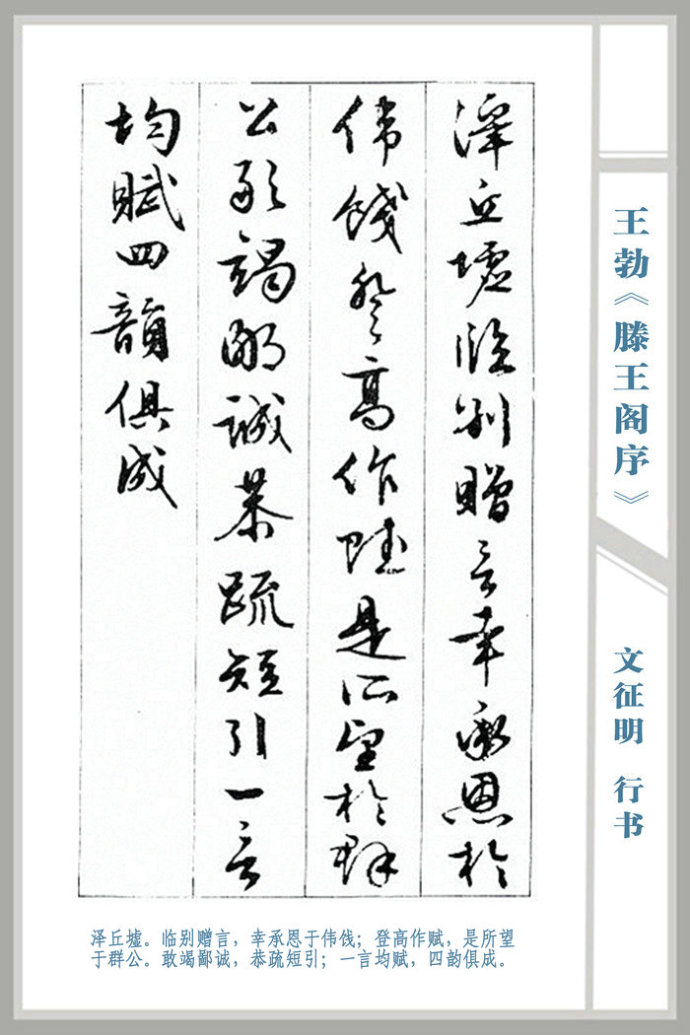 澤丘墟臨别贈言幸承恩於
偉餞登高作賦是所望於群
公敢竭鄙誠恭疏短引一言
均賦四韻俱成
王勃《滕王阁序》
文征明 行书
泽丘墟。临别赠言，幸承恩于伟饯；登高作赋，是所望
于群公。敢竭鄙诚，恭疏短引；一言均赋，四韵俱成。